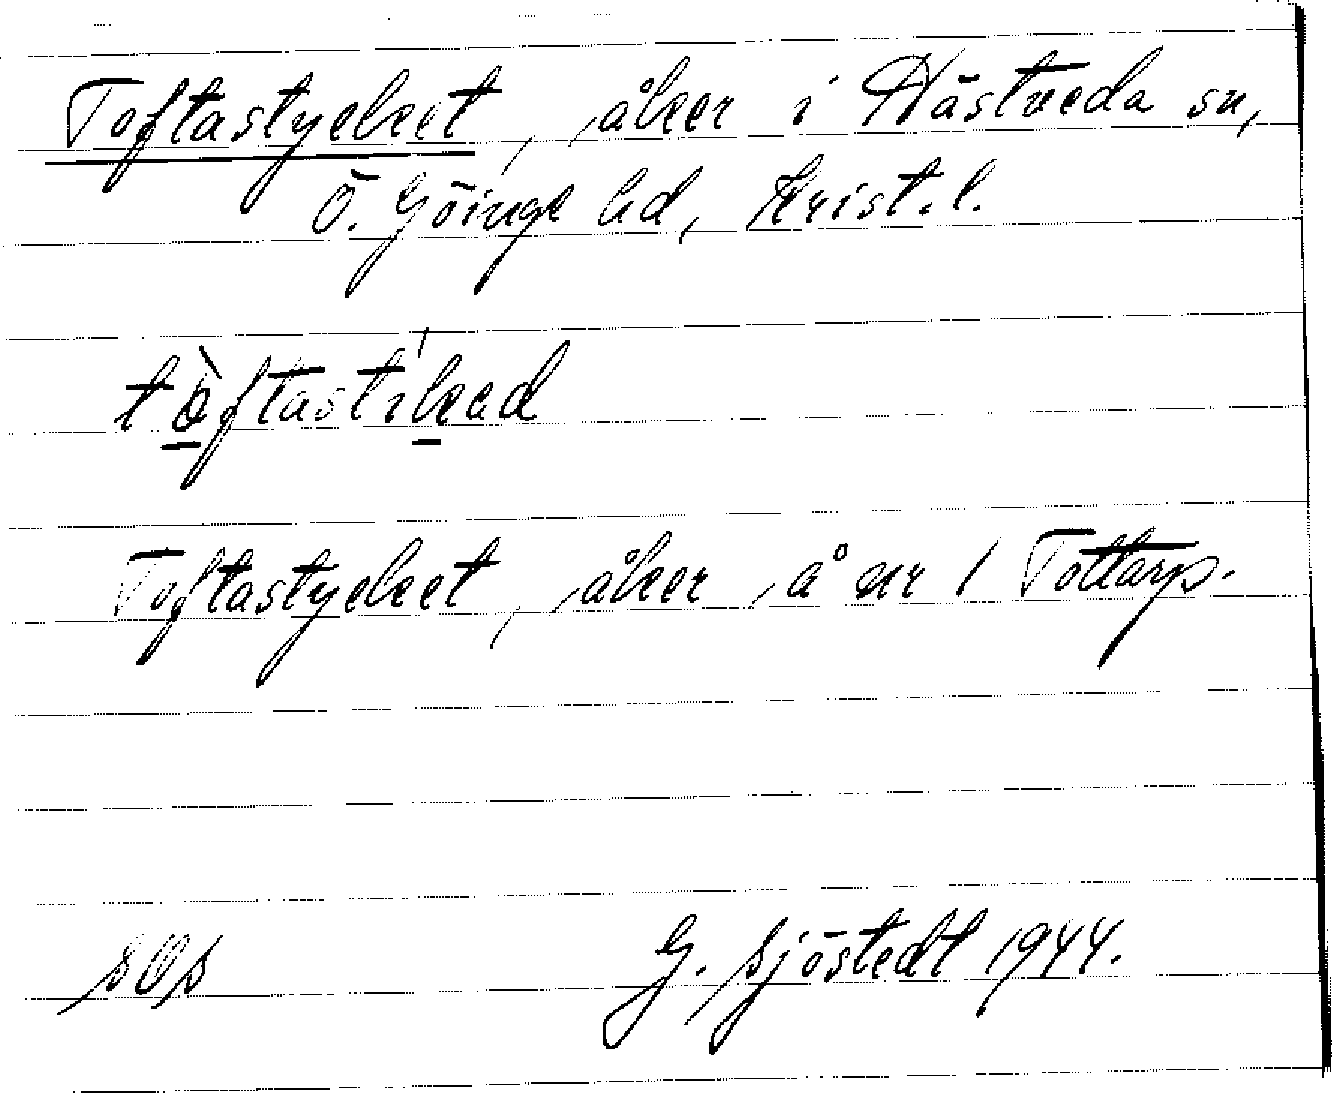 Toftastycket, åker i Hästveda sn,
Ö. Göinge hd, Krist. l.
tòftastíkad
Toftastycket, åker, å nr 1 Tottarp.
G. Sjöstedt 1944.